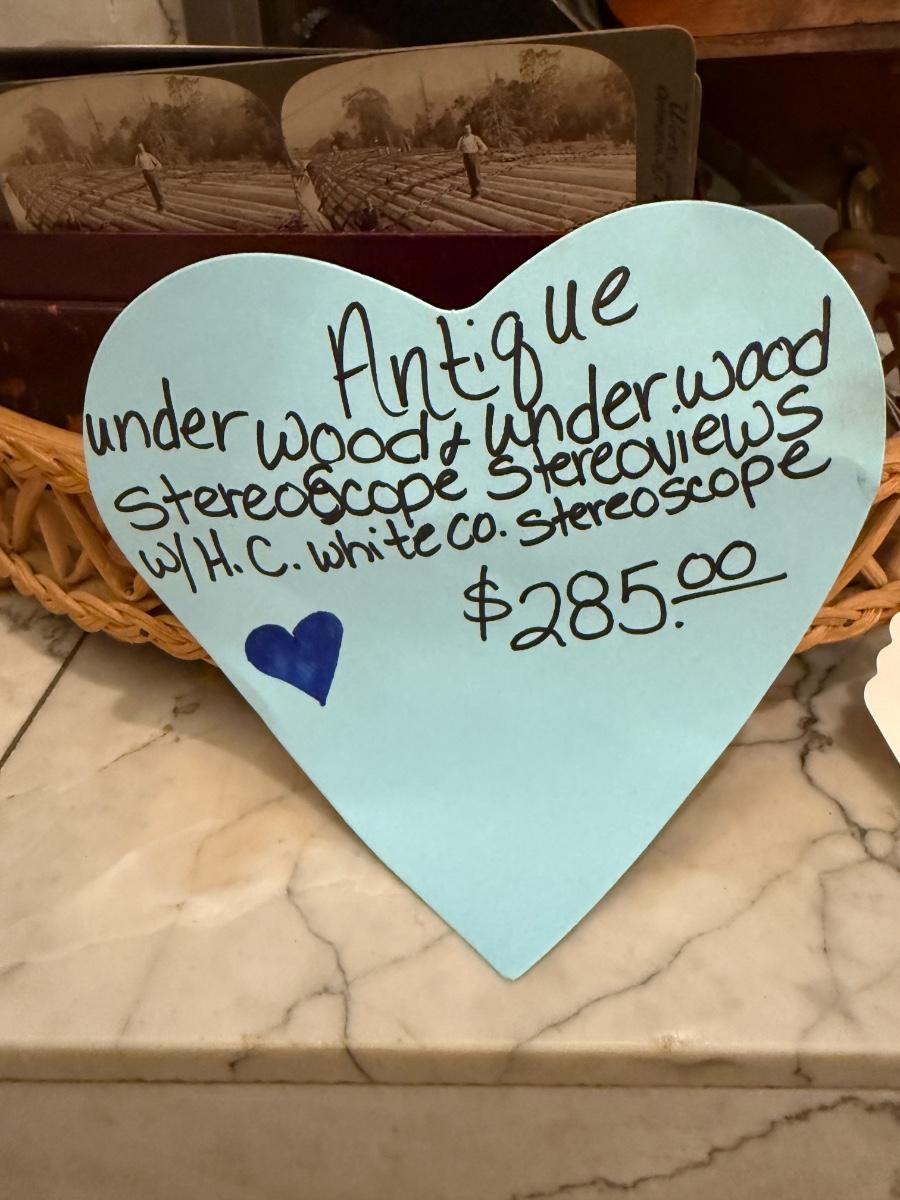 Antique
underwood & underwood
Stereoscope Stereoviews
w/ H.C. white co. stereoscope
$285.00